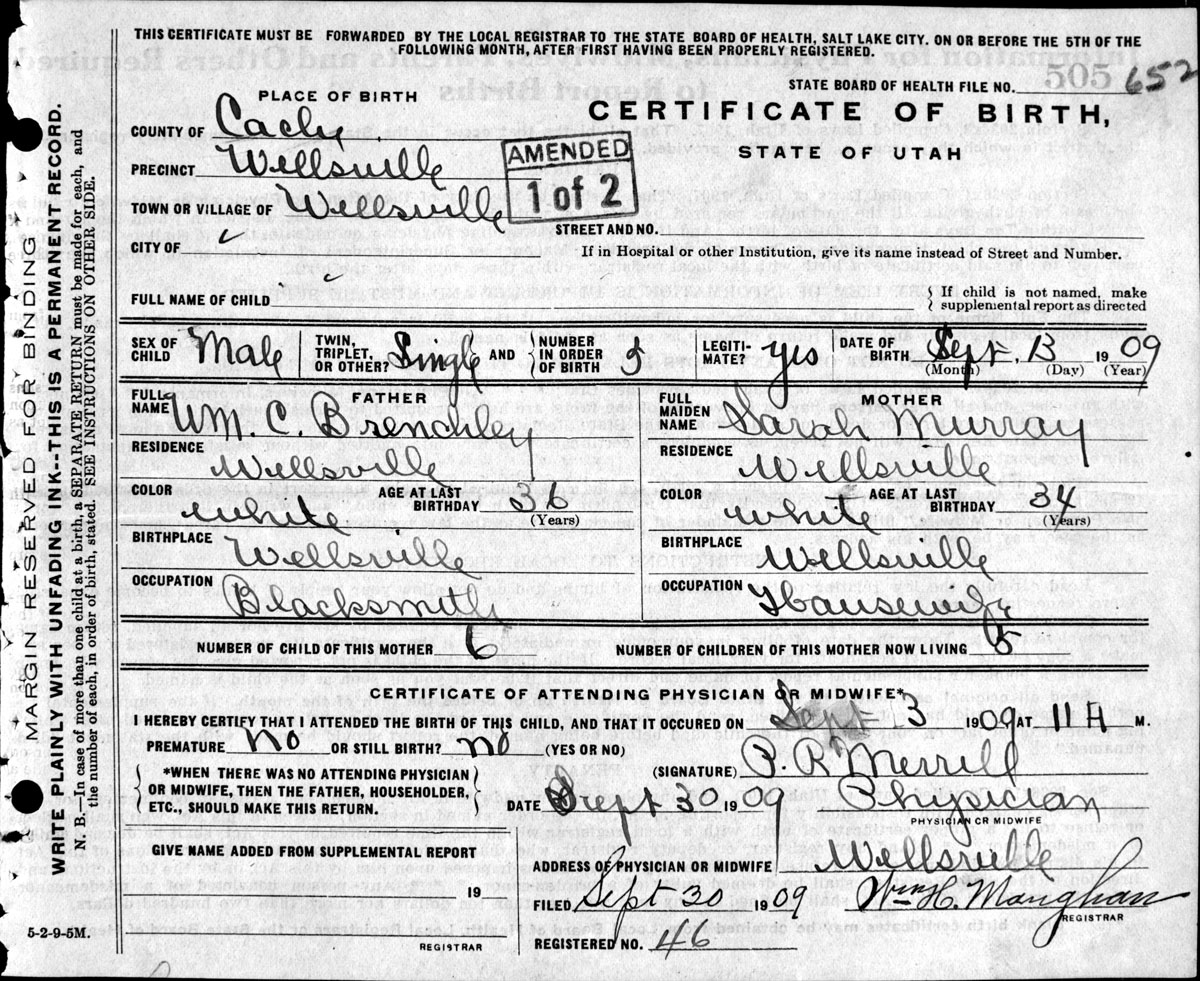 THIS CERTIFICATE MUST BE FORWARDED BY THE LOCAL REGISTRAR TO THE STATE BOARD OF HEALTH, SALT LAKE CITY. ON OR BEFORE THE 5TH OF THE
FOLLOWING MONTH, AFTER FIRST HAVING BEEN PROPERLY REGISTERED.
STATE BOARD OF HEALTH FILE NO. 652
505
PLACE OF BIRTH
CERTIFICATE OF BIRTH,
STATE OF UTAH
COUNTY OF Cache
PRECINCT Wellsville
AMENDED
1 of 2
TOWN OR VILLAGE OF Wellsville
STREET AND NO.
CITY OF
If in Hospital or other Institution, give its name instead of Street and Number.
FULL NAME OF CHILD
{ If child is not named, make
supplemental report as directed
SEX OF CHILD Male TWIN, TRIPLET, OR OTHER? Single AND { NUMBER IN ORDER OF BIRTH 5 LEGITI-MATE? yes DATE OF BIRTH Sept, 13 1909
(Month) (Day) (Year)
FATHER
FULL NAME Wm. C Brenchley
RESIDENCE
Wellsville
COLOR White AGE AT LAST BIRTHDAY 36 (Years)
BIRTHPLACE
Wellsville
OCCUPATION
Blacksmith
MOTHER
FULL MAIDEN NAME Sarah Murray
RESIDENCE
Wellsville
COLOR White AGE AT LAST BIRTHDAY 34 (Years)
BIRTHPLACE
Wellsville
OCCUPATION
Housewife
NUMBER OF CHILD OF THIS MOTHER 6 NUMBER OF CHILDREN OF THIS MOTHER NOW LIVING 5
CERTIFICATE OF ATTENDING PHYSICIAN OR MIDWIFE*
I HEREBY CERTIFY THAT I ATTENDED THE BIRTH OF THIS CHILD, AND THAT IT OCCURED ON Sept 3 1909 AT 11 A M.
PREMATURE No OR STILL BIRTH? No (YES OR NO)
{ *WHEN THERE WAS NO ATTENDING PHYSICIAN
OR MIDWIFE, THEN THE FATHER, HOUSEHOLDER,
ETC., SHOULD MAKE THIS RETURN. }
(SIGNATURE) P. R Merrill
DATE Sept 30 1909 Physician
PHYSICIAN OR MIDWIFE
GIVE NAME ADDED FROM SUPPLEMENTAL REPORT
ADDRESS OF PHYSICIAN OR MIDWIFE Wellsville
19
FILED Sept 30 1909 Wm H. Maughan
REGISTRAR
5-2-9-5M.
REGISTRAR
REGISTERED NO. 46
MARGIN RESERVED FOR BINDING
WRITE PLAINLY WITH UNFADING INK--THIS IS A PERMANENT RECORD.
N. B.—In case of more than one child at a birth, a SEPARATE RETURN must be made for each, and
the number of each, in order of birth, stated. SEE INSTRUCTIONS ON OTHER SIDE.